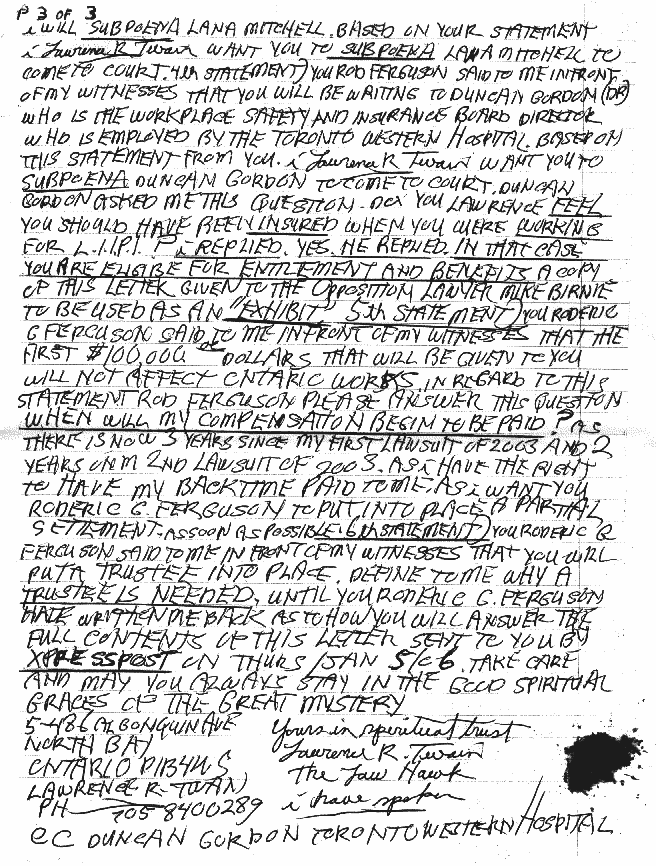 P 3 OF 3
i WILL SUBPOENA LANA MITCHELL. BASED ON YOUR STATEMENT
i Lawrence R Twain WANT YOU TO SUBPOENA LANA MITCHELL TO
COME TO COURT. 4th STATEMENT) YOU ROD FERGUSON SAID TO ME IN FRONT
OF MY WITNESSES THAT YOU WILL BE WAITING TO DUNCAN GORDON (DR)
WHO IS THE WORKPLACE SAFETY AND INSURANCE BOARD DIRECTOR
WHO IS EMPLOYED BY THE TORONTO WESTERN HOSPITAL. BASED ON
THIS STATEMENT FROM YOU. i Lawrence R Twain WANT YOU TO
SUBPOENA DUNCAN GORDON TO COME TO COURT. DUNCAN
GORDON ASKED ME THIS QUESTION. DO YOU LAWRENCE FEEL
YOU SHOULD HAVE BEEN INSURED WHEN YOU WERE WORKING
FOR L.I.P. ? i REPLIED. YES. HE REPLIED. IN THAT CASE
YOU ARE ELIGIBLE FOR ENTITLEMENT AND BENEFITS A COPY
OF THIS LETTER GIVEN TO THE OPPOSITION LAWYER MIKE BIRNIE
TO BE USED AS AN "EXHIBIT" 5th STATEMENT) YOU RODERIC
G FERGUSON SAID TO ME IN FRONT OF MY WITNESSES THAT THE
FIRST $100,000 DOLLARS THAT WILL BE GIVEN TO YOU
WILL NOT AFFECT ONTARIO WORKS. IN REGARD TO THIS
STATEMENT ROD FERGUSON PLEASE ANSWER THIS QUESTION
WHEN WILL MY COMPENSATION BEGIN TO BE PAID? AS
THERE IS NOW 3 YEARS SINCE MY FIRST LAWSUIT OF 2003 AND 2
YEARS ON M 2ND LAWSUIT OF 2003. AS i HAVE THE RIGHT
TO HAVE MY BACKTIME PAID TO ME. AS i WANT YOU
RODERIC G. FERGUSON TO PUT INTO PLACE A PARTIAL
SETTEMENT. AS SOON AS POSSIBLE. 6th STATEMENT) YOU RODERIC G
FERGUSON SAID TO ME IN FRONT OF MY WITNESSES THAT YOU WILL
PUT A TRUSTEE INTO PLACE. DEFINE TO ME WHY A
TRUSTEE IS NEEDED. UNTIL YOU RODERIC G. FERGUSON
HAVE WRITTEN ME BACK AS TO HOW YOU WILL ANSWER THE
FULL CONTENTS OF THIS LETTER SENT TO YOU BY
XPRESSPOST ON THURS/JAN 5/06. TAKE CARE
AND MAY YOU ALWAYS STAY IN THE GOOD SPIRITUAL
GRACES OF THE GREAT MYSTERY
5-486 ALGONQUIN AVE
NORTH BAY
ONTARIO P1B4W5
LAWRENCE R. TWAN)
PH 705 8400289
Yours in spiritual trust
Lawrence R. Twain
The Law Hawk
i have spoken
CC DUNCAN GORDON TORONTO WESTERN HOSPITAL